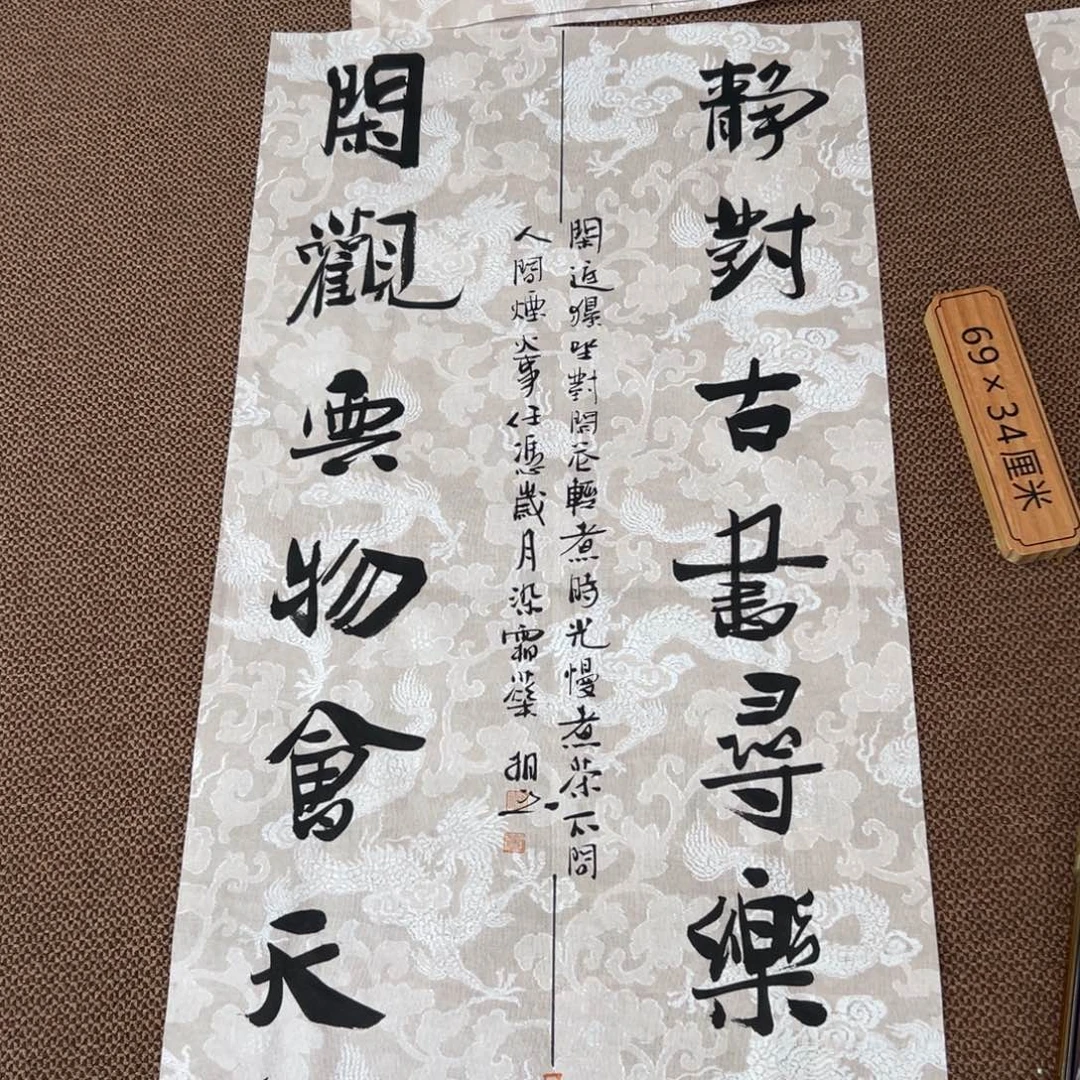 靜對古書尋樂
閑庭獨坐對閑花輕煮時光慢煮茶不問
人間煙火事任憑歲月染霜華
閑觀雲物會天
69×34厘米